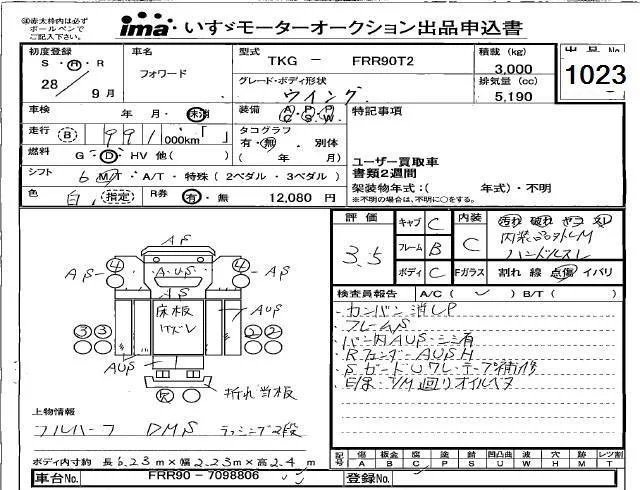 ㊟赤太枠内は必ず
ボールペンで
ご記入下さい。
ima いすゞモーターオークション出品申込書
初度登録 車名 型式 TKG － FRR90T2 積載 (kg) 3,000 出品No 1023
S・H・R 28年 9月 フォワード グレード・ボディ形状 ウイング 排気量 (cc) 5,190
車検 年 月・未消 装備 A/C P/S P/W 特記事項
走行 B 991 000km「 」 タコグラフ 有・無 別体
燃料 G・D・HV 他( ) ( 年 月) ユーザー買取車
書類2週間
シフト 6 M/T・A/T・特殊(2ペダル・3ペダル) 架装物年式:( 年式)・不明
※不明の場合は、不明に○をする。
色 白 指定 R券 有・無 12,080 円
評価 3.5 キャブ C 内装 C 汚れ 破れ
フレーム B ハンドルスレ
ボディ C Fガラス 割れ 線 点傷 イバリ
検査員報告 A/C( ) B/T( )
カンバン消しP
フレームS
バン内AUS
RフェンダーAUSH
SガードUワレ テープ補修
E/床・T/M廻りオイルベタ
AS
AS 4 AUS 4 AS
AS
床板
3 3 AUS 2 2
AUS
R 折れ当板
上物情報
フルハーフ DMS ラッシング2段
ボディ内寸約 長6.23m×幅2.23m×高2.4m
記号 傷 A 板金 B 腐 C 塗 P 錆 S 凹凸曲 U 波 W 穴 H 跡 M レツ割 T
車台No. FRR90－7098806 登録No.